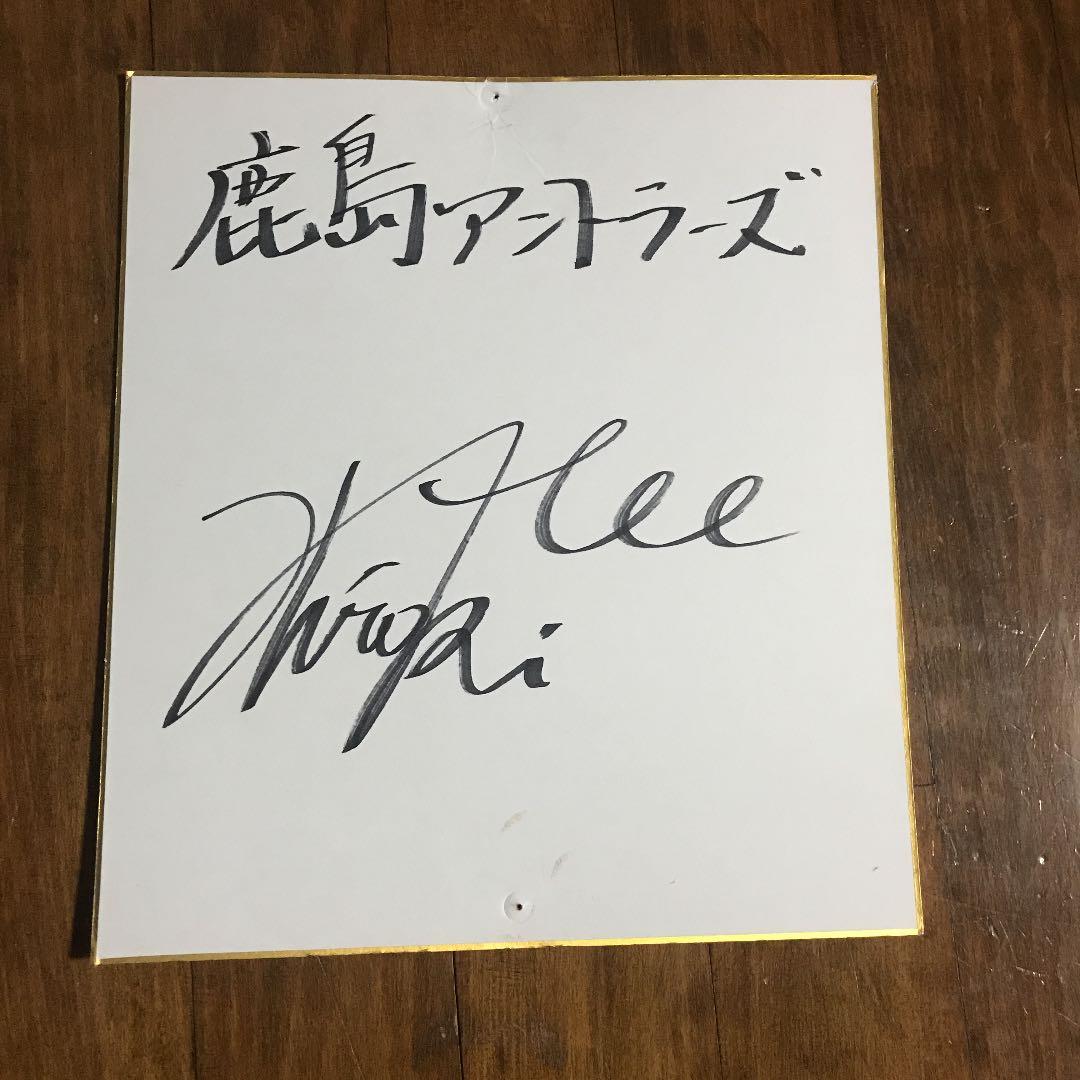 鹿島アントラーズ
Hiroki